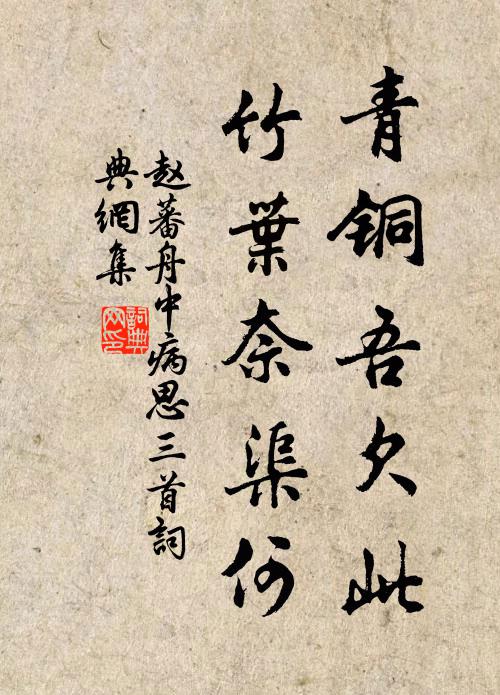 青铜吾欠此
竹葉奈渠何
赵蕃舟中病思三首詞
典網集
詞典
网印